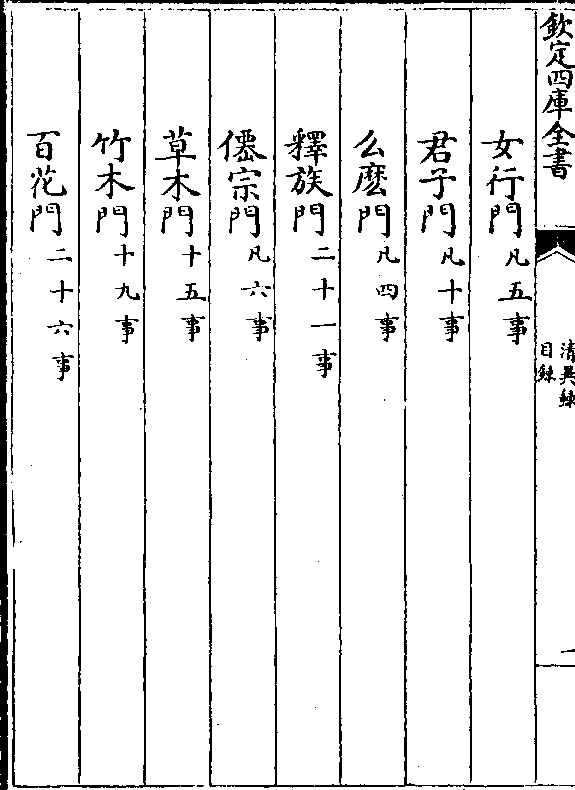 欽定四庫全書
清異錄
目錄
一
女行門凡五事
君子門凡十事
么麽門凡四事
釋族門二十一事
僊宗門凡六事
草木門十五事
竹木門十九事
百花門二十六事